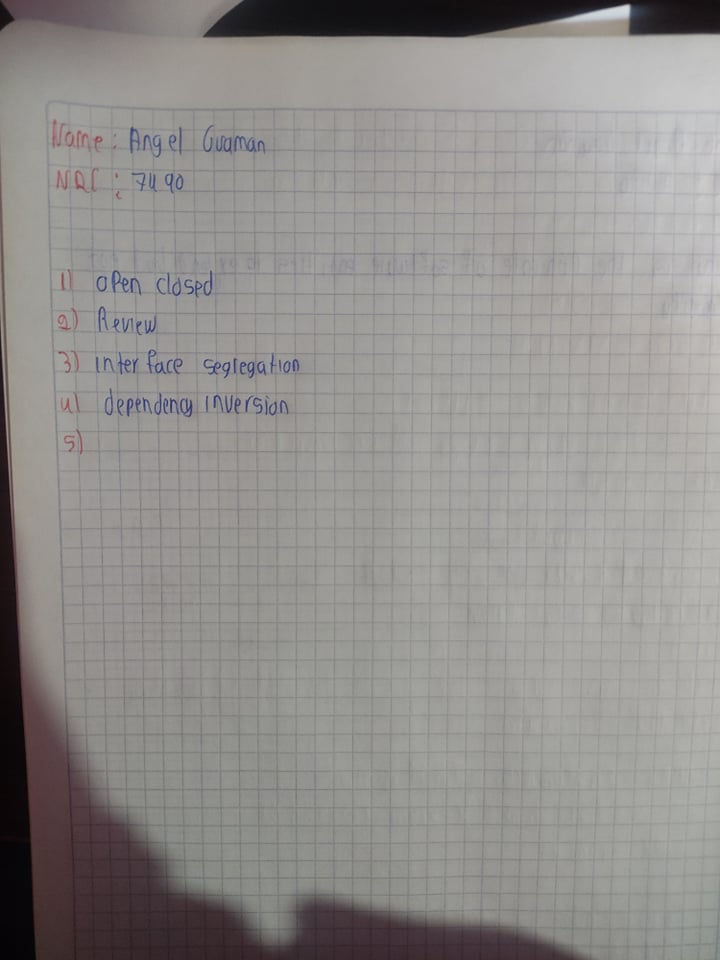 Name: Angel Guaman
NRC: 7490
1) open closed
2) Review
3) interface segregation
4) dependency inversion
5)